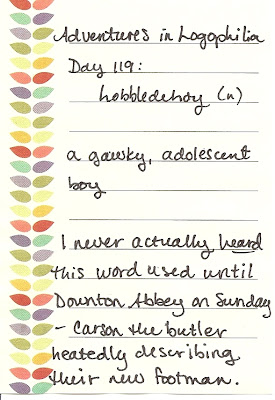 Adventures in Logophilia
Day 119:
hobbledehoy (n)
a gawky, adolescent
boy
I never actually heard
this word used until
Downton Abbey on Sunday
- Carson the butler
heatedly describing
their new footman.